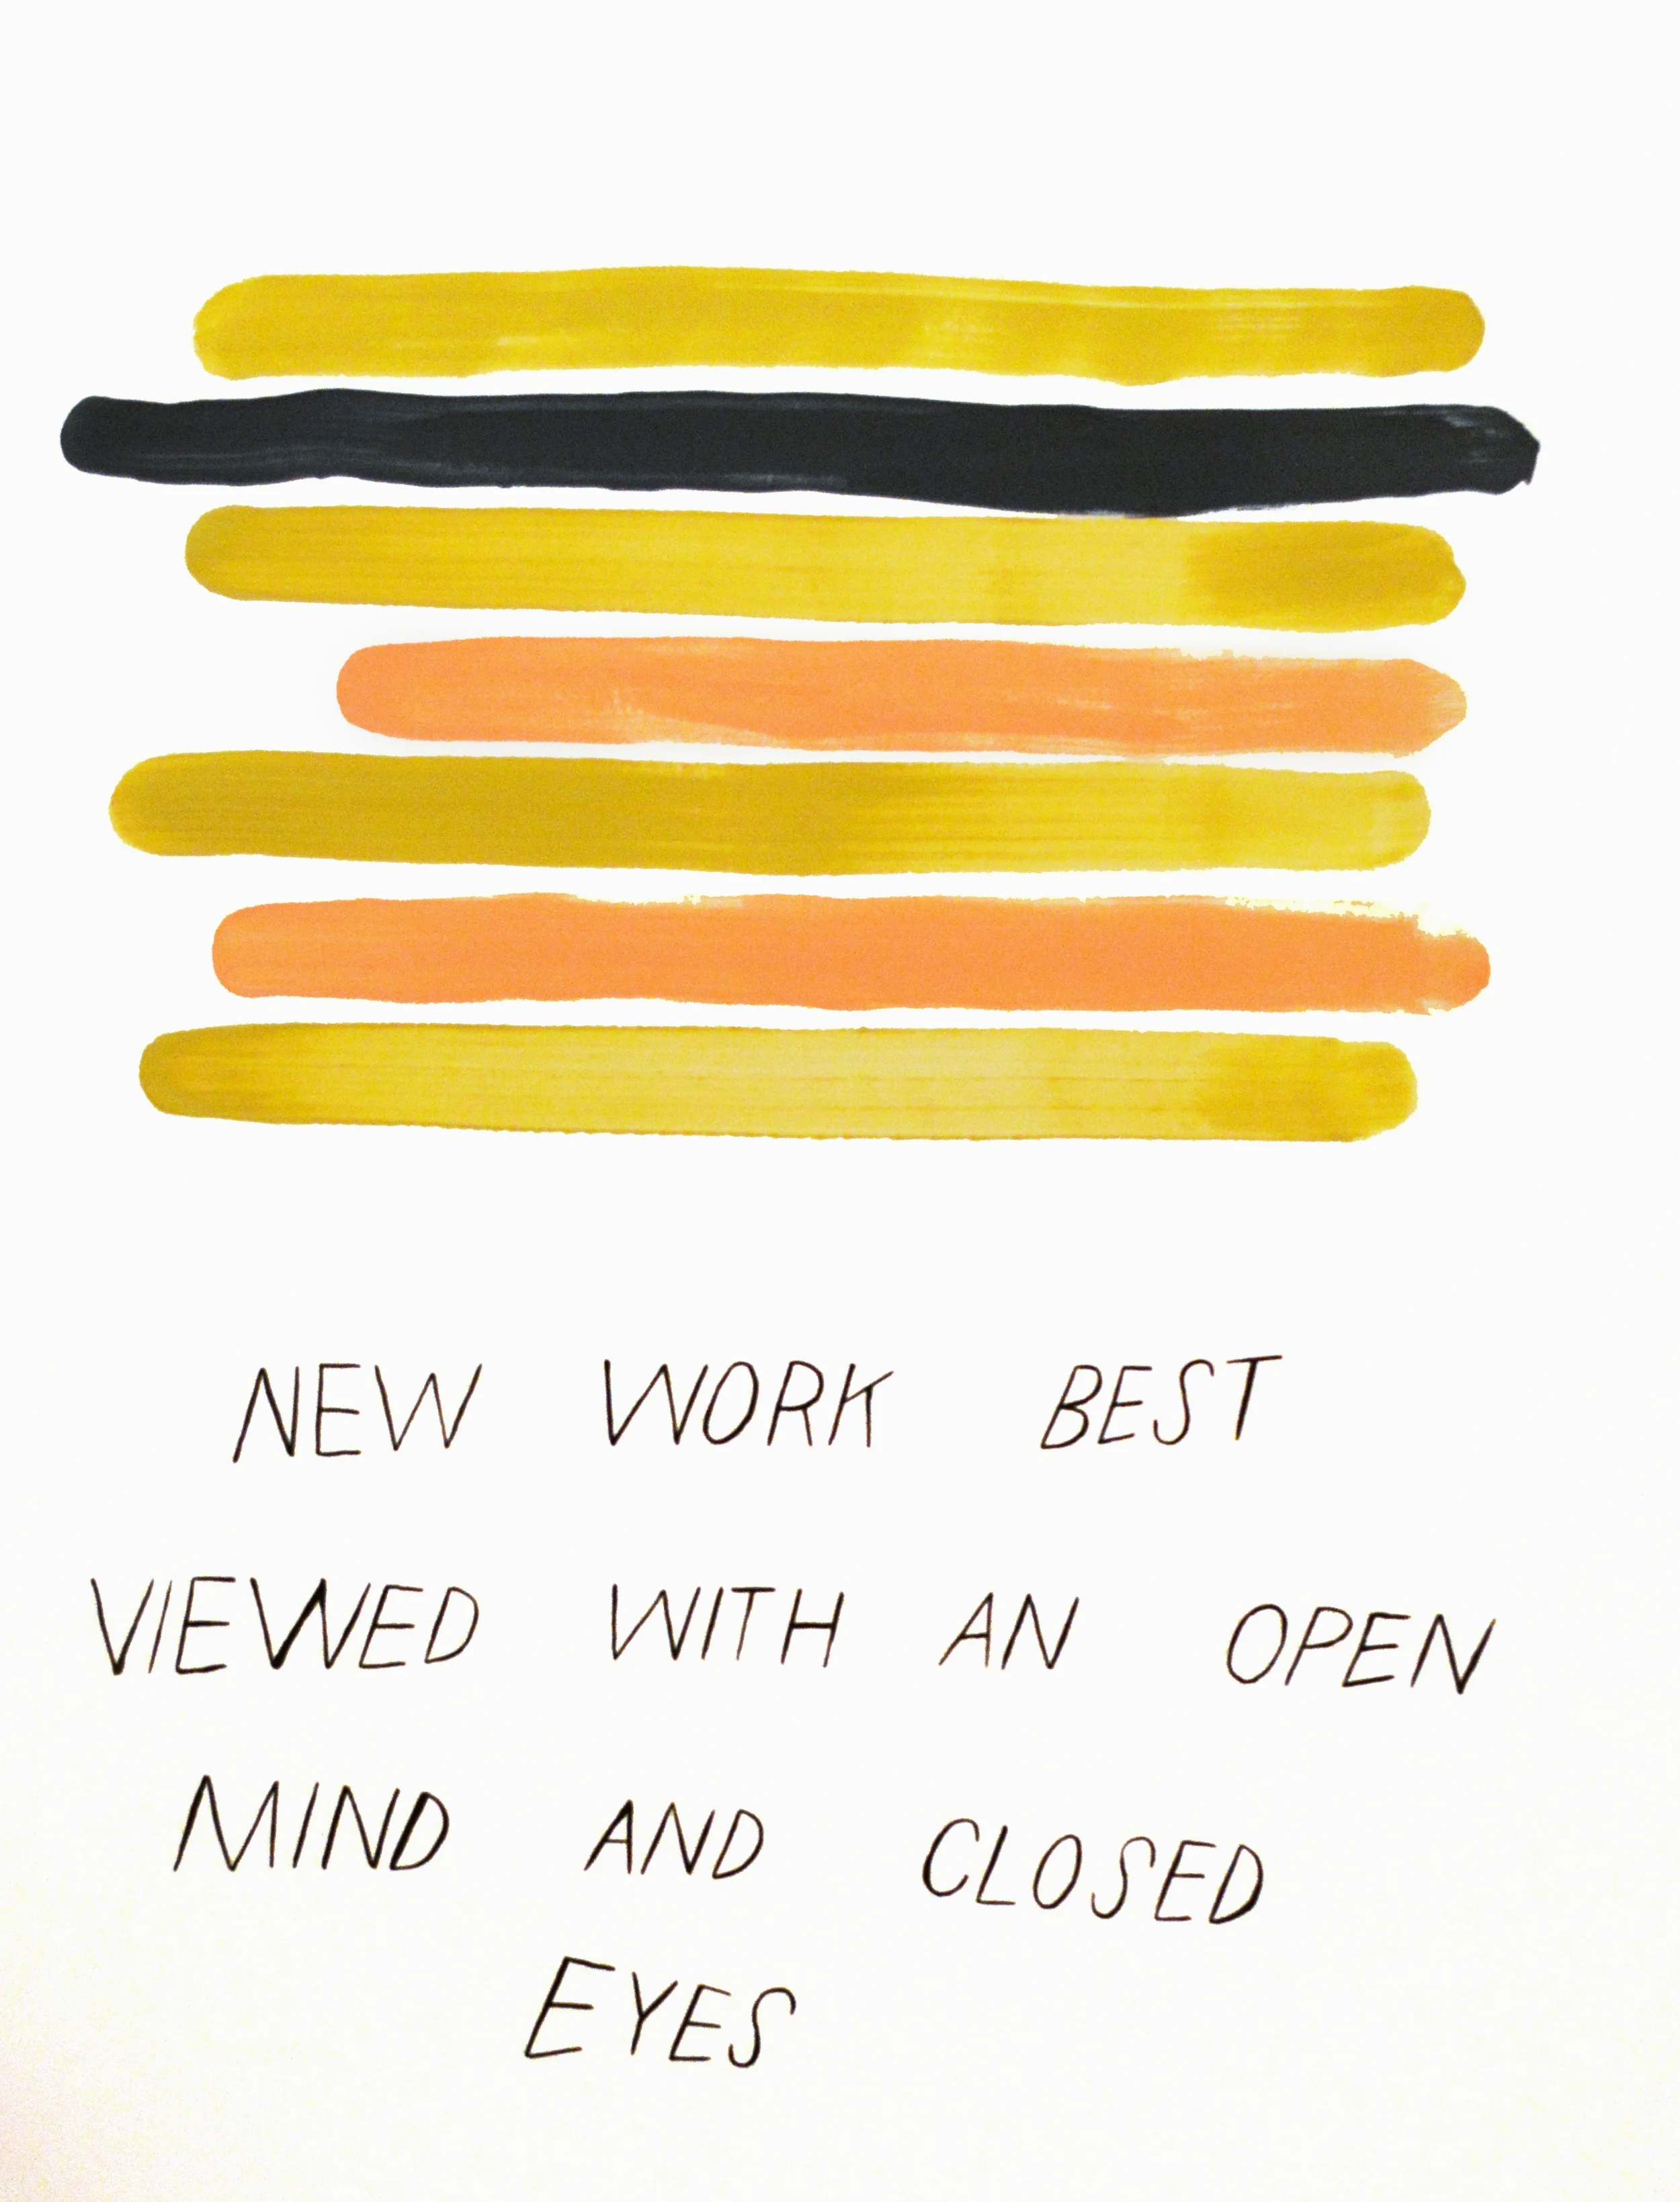 NEW WORK BEST
VIEWED WITH AN OPEN
MIND AND CLOSED
EYES